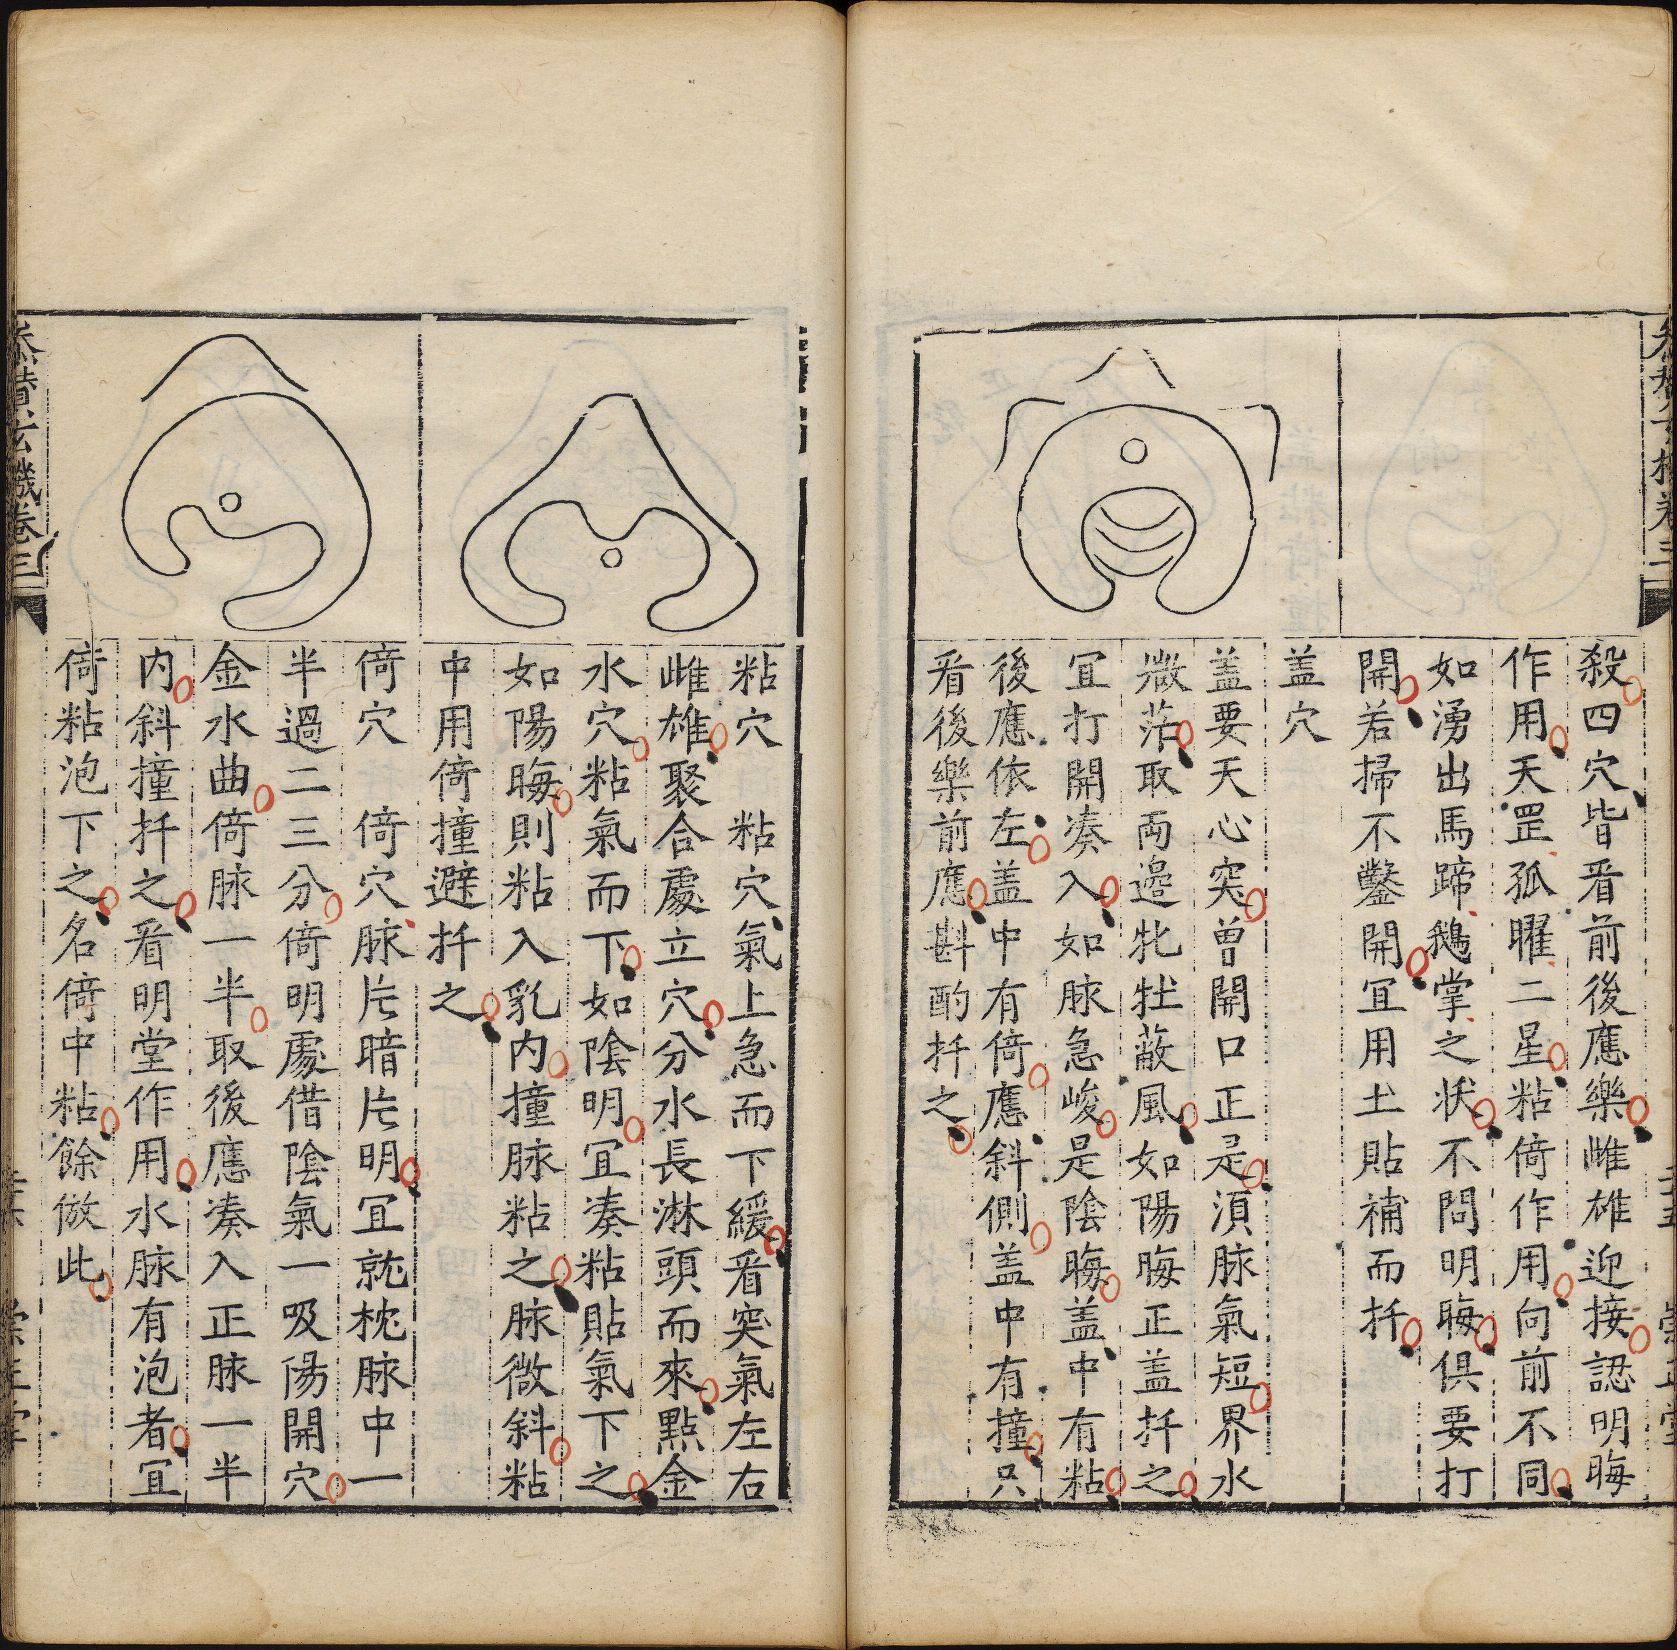 殺四穴皆看前後應樂雌雄迎接認明晦
作用天罡孤曜二星粘倚作用向前不同
如湧出馬蹄鵝掌之狀不問明晦俱要打
開若掃不鑿開冝用土貼補而扦
盖穴
盖要天心突曽開口正是湏脉氣短界水
微茫取両邉牝牡蔽風如陽晦正盖扦之
冝打開凑入如脉急峻是陰晦盖中有粘
後應依左盖中有倚應斜側盖中有撞只
看後樂前應斟酌扦之
粘穴　粘穴氣上急而下緩看突氣左右
雌雄聚合處立穴分水長淋頭而來點金
水穴粘氣而下如陰明冝凑粘貼氣下之
如陽晦則粘入乳内撞脉粘之脉微斜粘
中用倚撞避扦之
倚穴　倚穴脉片暗片明冝就枕脉中一
半過二三分倚明處借陰氣一吸陽開穴
金水曲倚脉一半取後應凑入正脉一半
内斜撞扦之看明堂作用水脉有泡者冝
倚粘泡下之名倚中粘餘倣此
玄機卷三